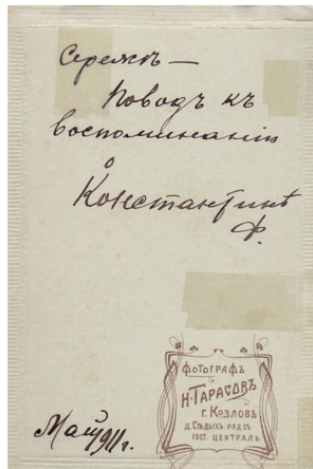 Сережѣ —
Поводъ къ
воспоминанію
о
Константинѣ
Ф.
Май 1911 г.
ФОТОГРАФЪ
Н. ТАРАСОВЪ
Г. КОЗЛОВЪ
Д. СѢДЫХЪ РЯДСЪ
ГОСТ. ЦЕНТРАЛЬ